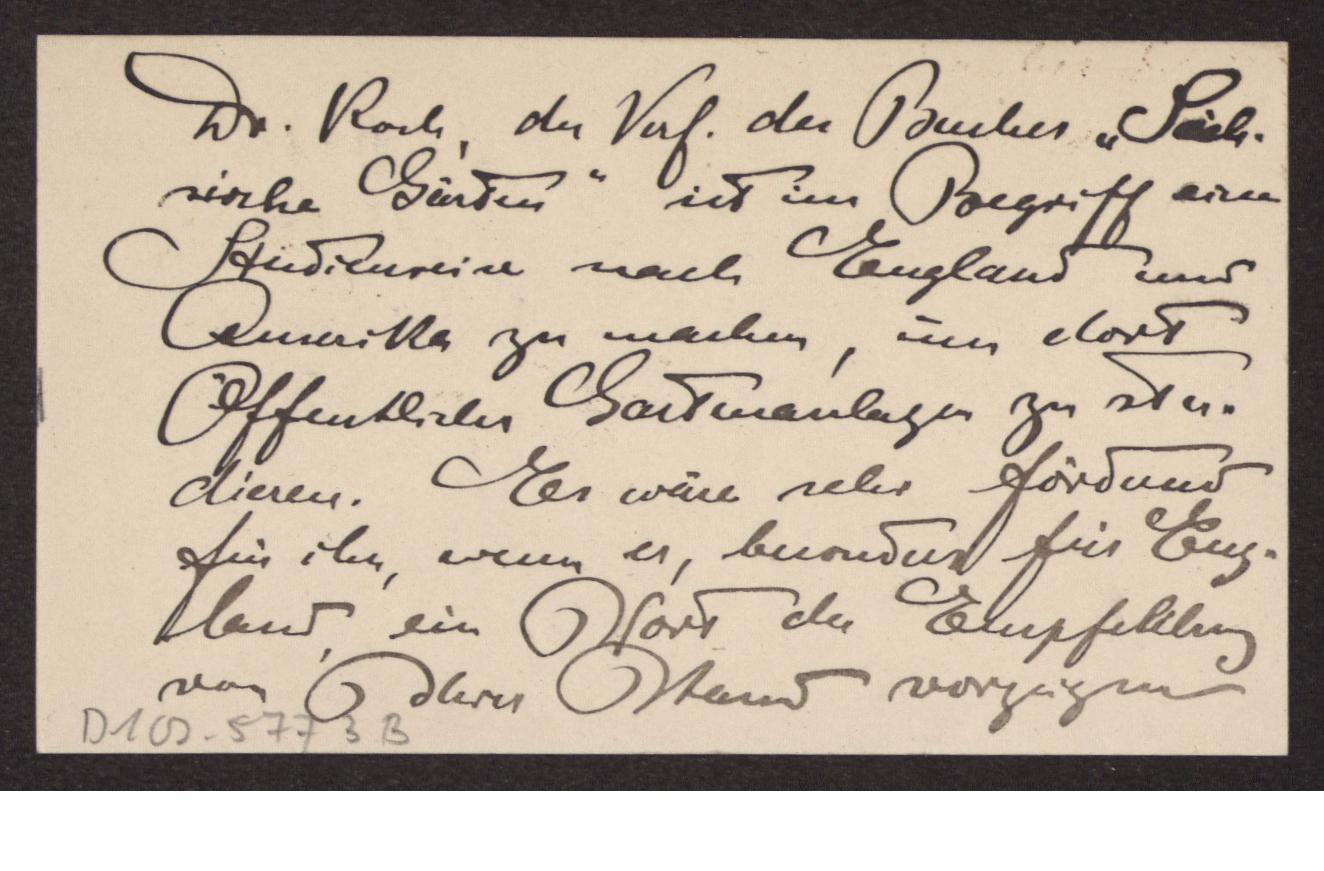 Dr. Koch, der Verf. des Buches „Säch-
sische Gärten“ ist im Begriff eine
Studienreise nach England und
Amerika zu machen, um dort
Öffentliche Gartenanlagen zu stu-
dieren. Es wäre sehr fördernd
für ihn, wenn er, besonders für Eng-
land, ein Wort der Empfehlung
von Ihrer Hand vorzeigen
D.102.5773 B